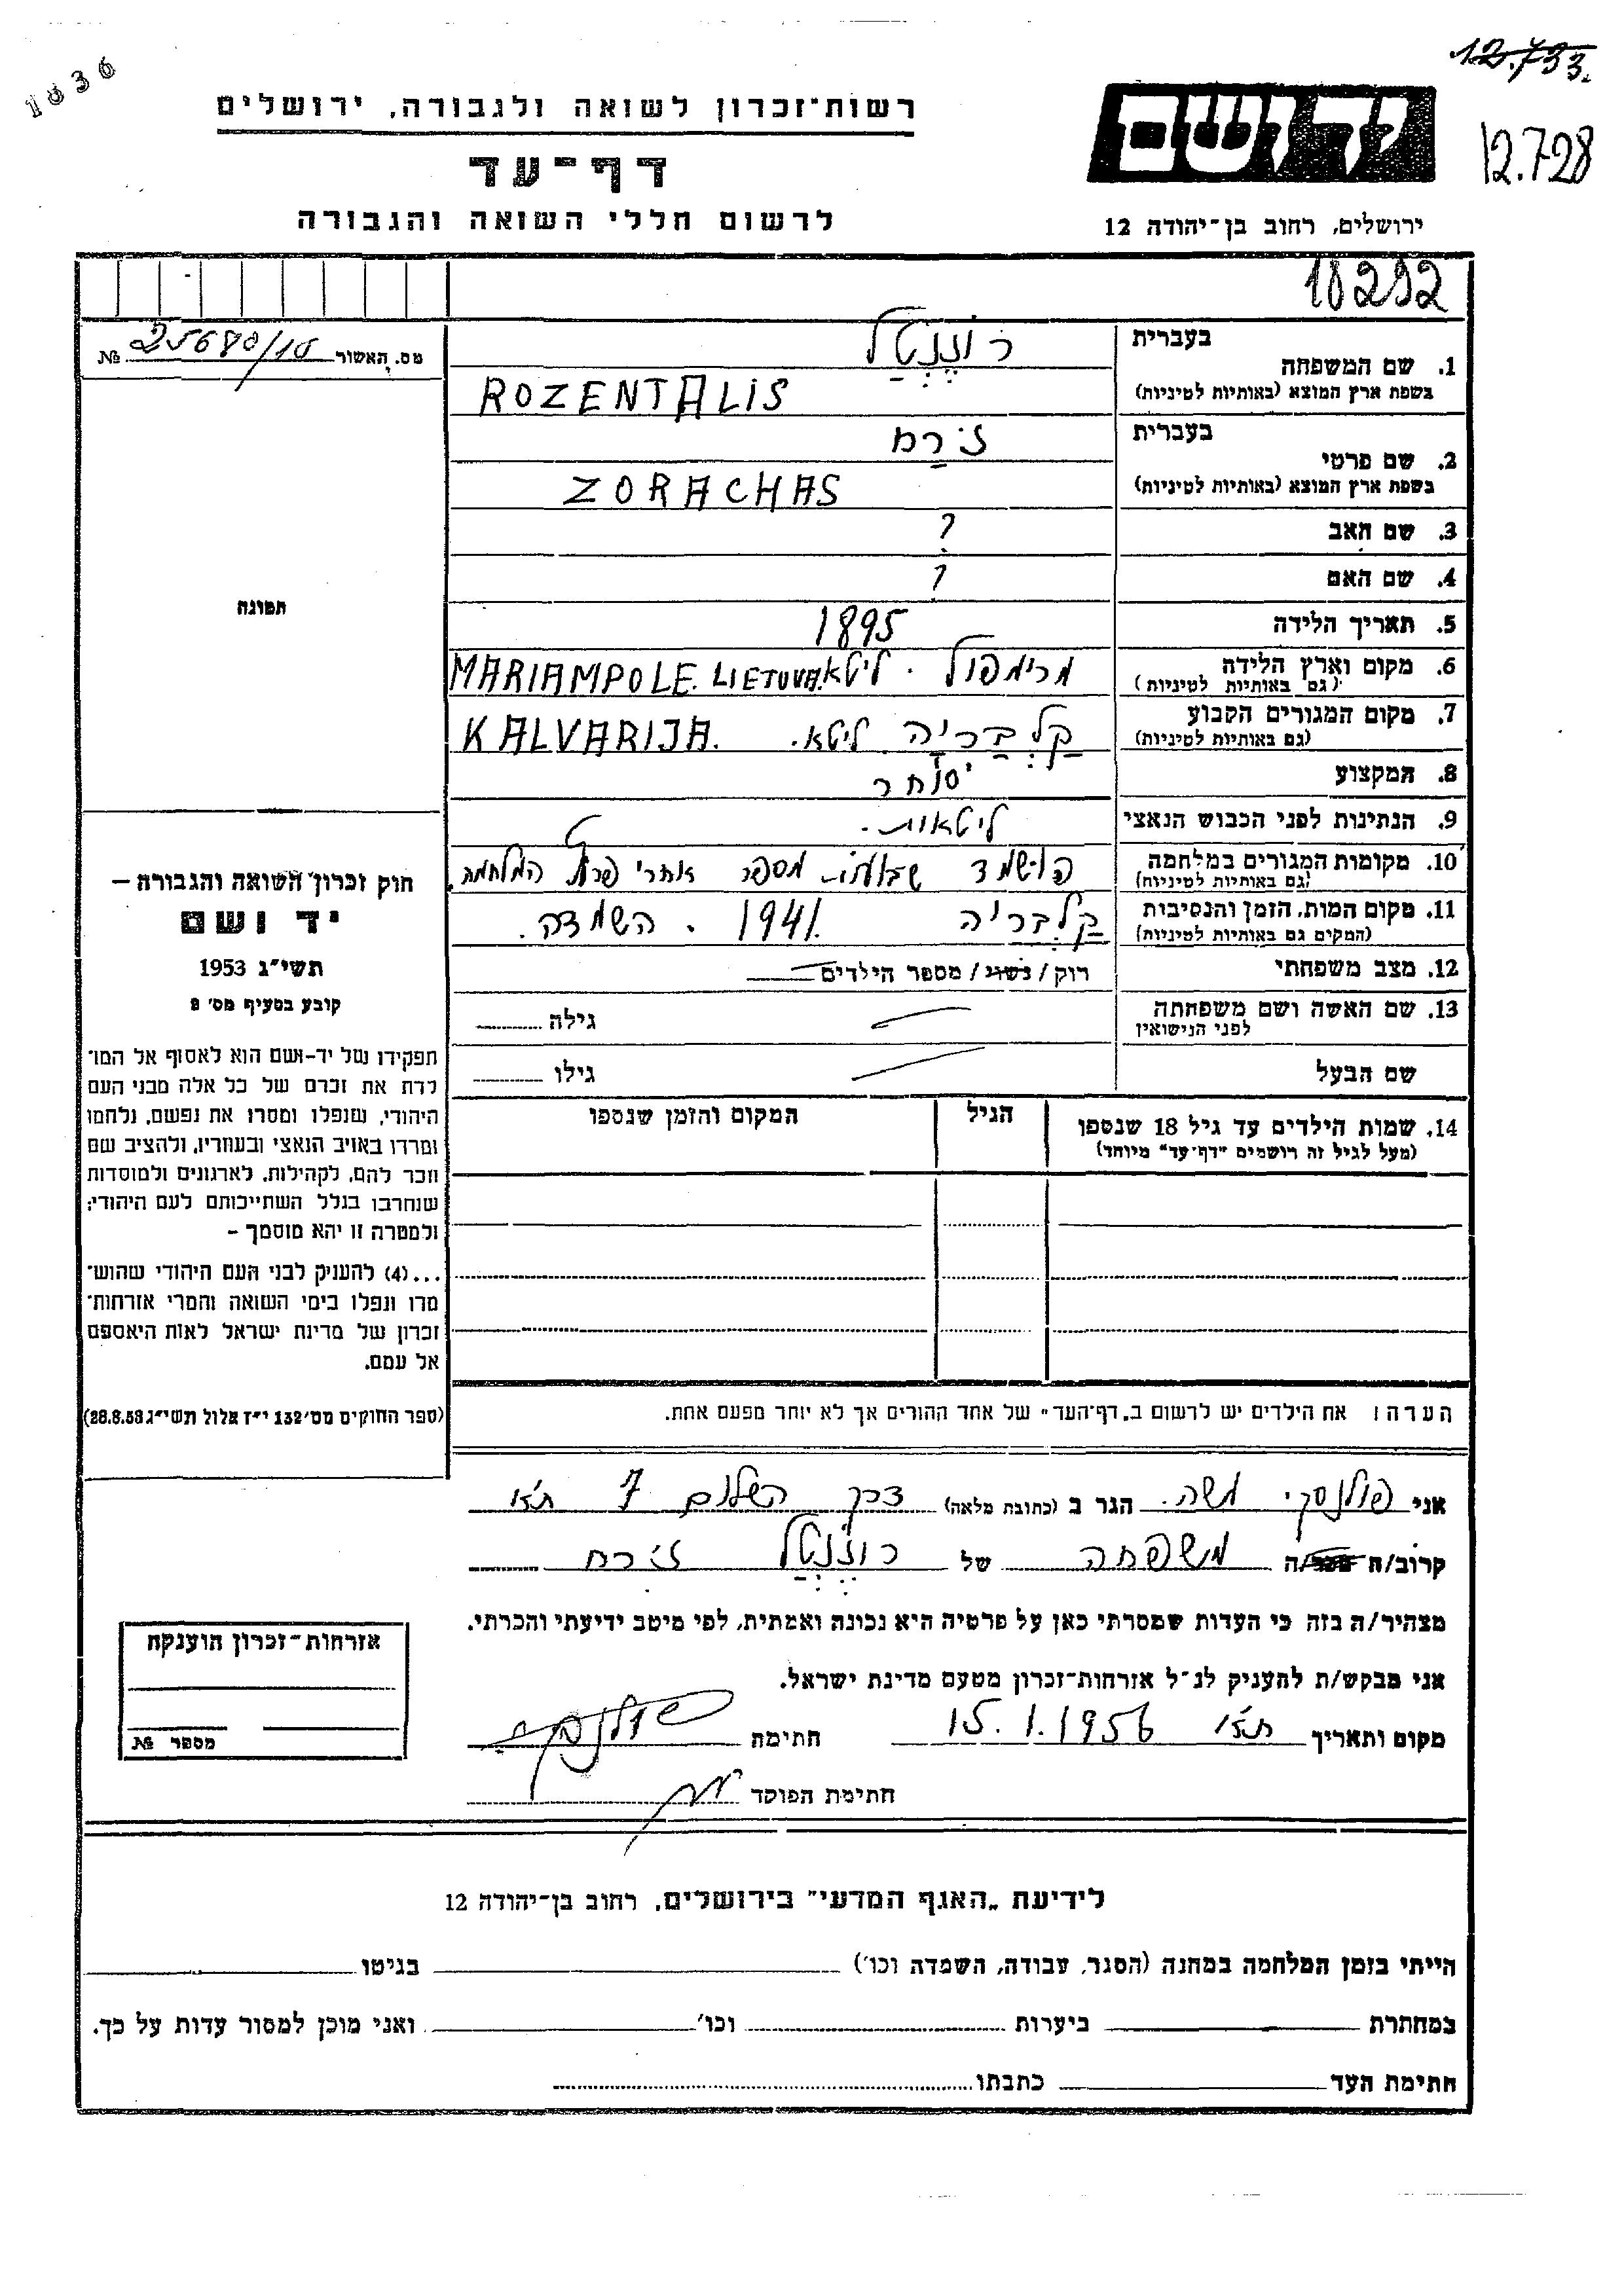 1836
12.733.
12.728
רשות־זכרון לשואה ולגבורה, ירושלים
דף־עד
לרשום חללי השואה והגבורה
יד ושם
ירושלים, רחוב בן־יהודה 12
18292
מס. האשור № 25680/18
1. שם המשפחה בעברית רוֹזֶנְטַל
בשפת ארץ המוצא (באותיות לטיניות) ROZENTALIS
2. שם פרטי בעברית זֹרַח
בשפת ארץ המוצא (באותיות לטיניות) ZORACHAS
3. שם האב ?
4. שם האם ?
תמונה
5. תאריך הלידה 1895
6. מקום וארץ הלידה מרימפול . ליטא MARIAMPOLE. LIETUVA.
(גם באותיות לטיניות)
7. מקום המגורים הקבוע קַלְבַרִיָה. ליטא. KALVARIJA.
(גם באותיות לטיניות)
8. המקצוע סוחר
9. הנתינות לפני הכבוש הנאצי ליטאות.
10. מקומות המגורים במלחמה הושמד שבועות מספר אחרי פרוץ המלחמה.
(גם באותיות לטיניות)
11. מקום המות, הזמן והנסיבות קַלְבריה 1941. השמדה.
(המקום גם באותיות לטיניות)
12. מצב משפחתי רוק/ נשוי/ מספר הילדים
13. שם האשה ושם משפחתה גילה
לפני הנישואין
שם הבעל גילו
14. שמות הילדים עד גיל 18 שנספו הגיל המקום והזמן שנספו
(מעל לגיל זה רושמים "דף־עד" מיוחד)
חוק זכרון השואה והגבורה –
יד ושם
תשי"ג 1953
קובע בסעיף מס' 2
תפקידו של יד-ושם הוא לאסוף אל המו־
לדת את זכרם של כל אלה מבני העם
היהודי, שנפלו ומסרו את נפשם, נלחמו
ומרדו באויב הנאצי ובעוזריו, ולהציב שם
וזכר להם, לקהילות, לארגונים ולמוסדות
שנחרבו בגלל השתייכותם לעם היהודי;
ולמטרה זו יהא מוסמך –
...(4) להעניק לבני העם היהודי שהוש־
מדו ונפלו בימי השואה והמרי אזרחות־
זכרון של מדינת ישראל לאות היאספם
אל עמם.
(ספר החוקים מס' 132 י"ז אלול תשי"ג 28.8.53)
הערה: את הילדים יש לרשום ב"דף־העד" של אחד ההורים אך לא יותר מפעם אחת.
אני פולנסקי משה. הגר ב (כתובת מלאה) דרך השלום 7 ת"א
קרוב/ה מכר/ה משפחה של רוֹזֶנְטַל זֹרח
מצהיר/ה בזה כי העדות שמסרתי כאן על פרטיה היא נכונה ואמתית, לפי מיטב ידיעתי והכרתי.
אני מבקש/ת להעניק לנ"ל אזרחות־זכרון מטעם מדינת ישראל.
מקום ותאריך ת"א 15.1.1956 חתימה
חתימת הפוקד
אזרחות־זכרון הוענקה
מספר №
לידיעת "האגף המדעי" בירושלים, רחוב בן־יהודה 12
הייתי בזמן המלחמה במחנה (הסגר, עבודה, השמדה וכו') בגיטו
במחתרת ביערות וכו' ואני מוכן למסור עדות על כך.
חתימת העד כתבתו